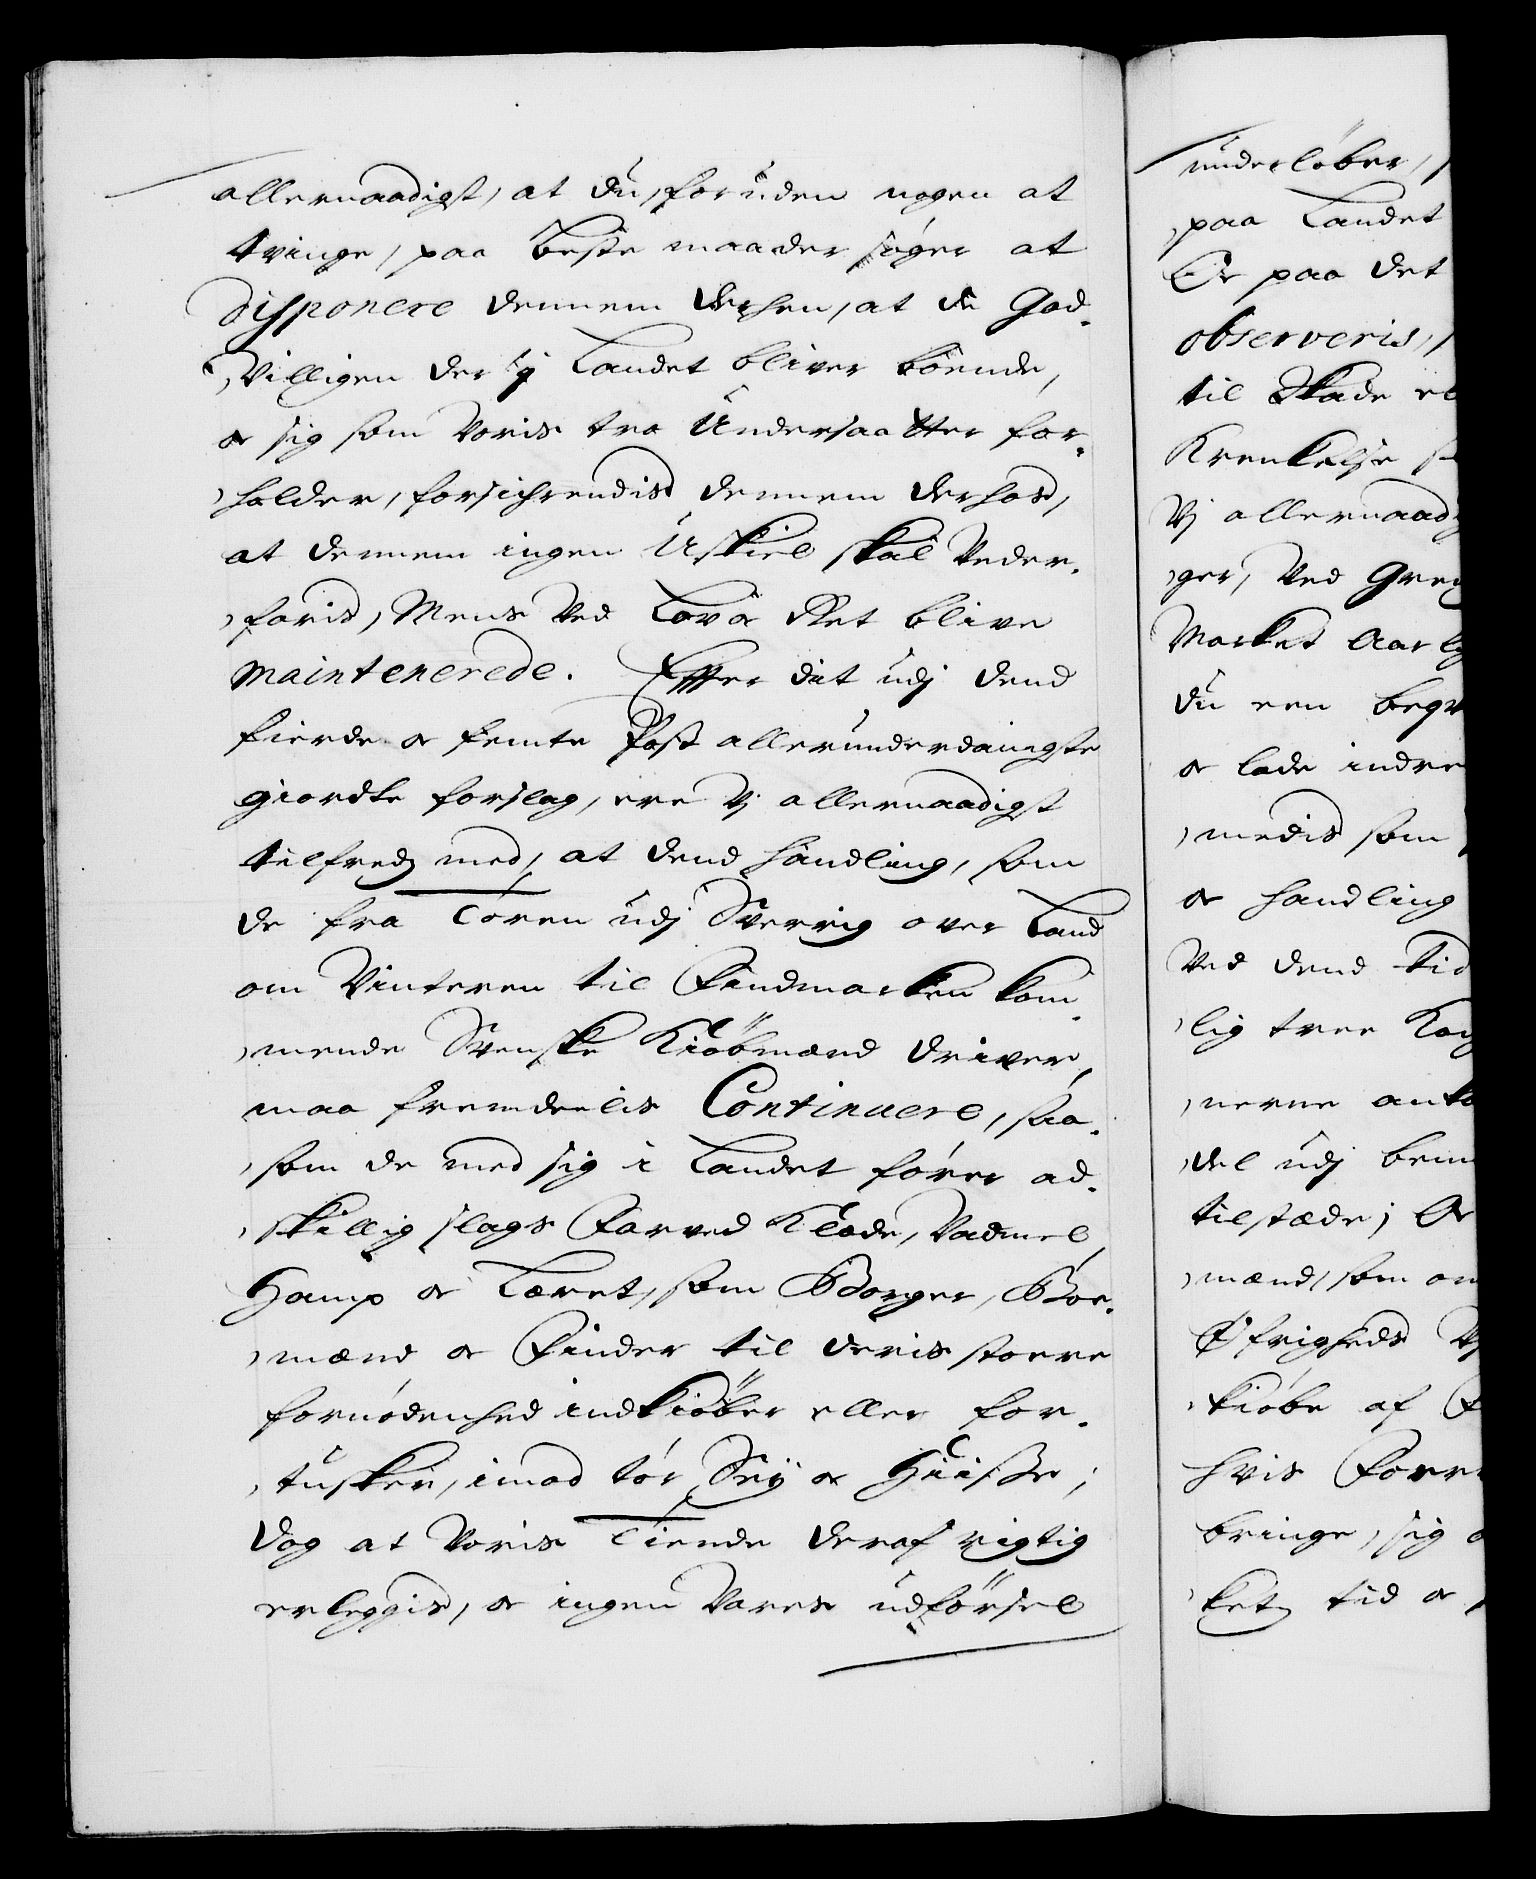 allernaadigst, at du, foruden nogen at
tvinge, paa beste maader søger at
disponere dennem derhen, at de God-
villigen der i Landet bliver boende,
og sig som Voris tro Undersaatter for-
holder, forsichrendis dennem derhos,
at dennem ingen Uskiel skal Veder-
faris, Mens ved Lov og Ret blive
maintenerede. Effter dit udj dend
fierde og femte Post allerunderdanigste
giordte forslag, ere Vj allernaadigst
tilfreds med, at dend handling, som
de fra Toren udj Sverrig over Land
om Vinteren til Findmarken kom-
mende Svenske Kiøbmænd driver,
maa fremdeelis Continuere, saa-
som de med sig i Landet fører ad-
skillig slags Farved Klæde, Vadmel,
Hamp og Lærret, som Borger, Boe-
mænd og Finder til deris storre
fornødenhed indkiøber eller for-
tusker, imod tør Sey og Huiser;
dog at Voris Tiende deraf rigtig
erleggis, og ingen Vares udførsel
underløber,
paa Landet
Og paa det
observeris,
til Skade
Krenkelse
Vj allernaad
ger, ved
Market Aarl
du een
og lade indre
medis som
og handling
Ved dend tid
lig tree
nerne
del udj
tilstæde; Og
mænd, som
Øfrigheds
kiøbe af
hvis
bringe, sig
kets tid og